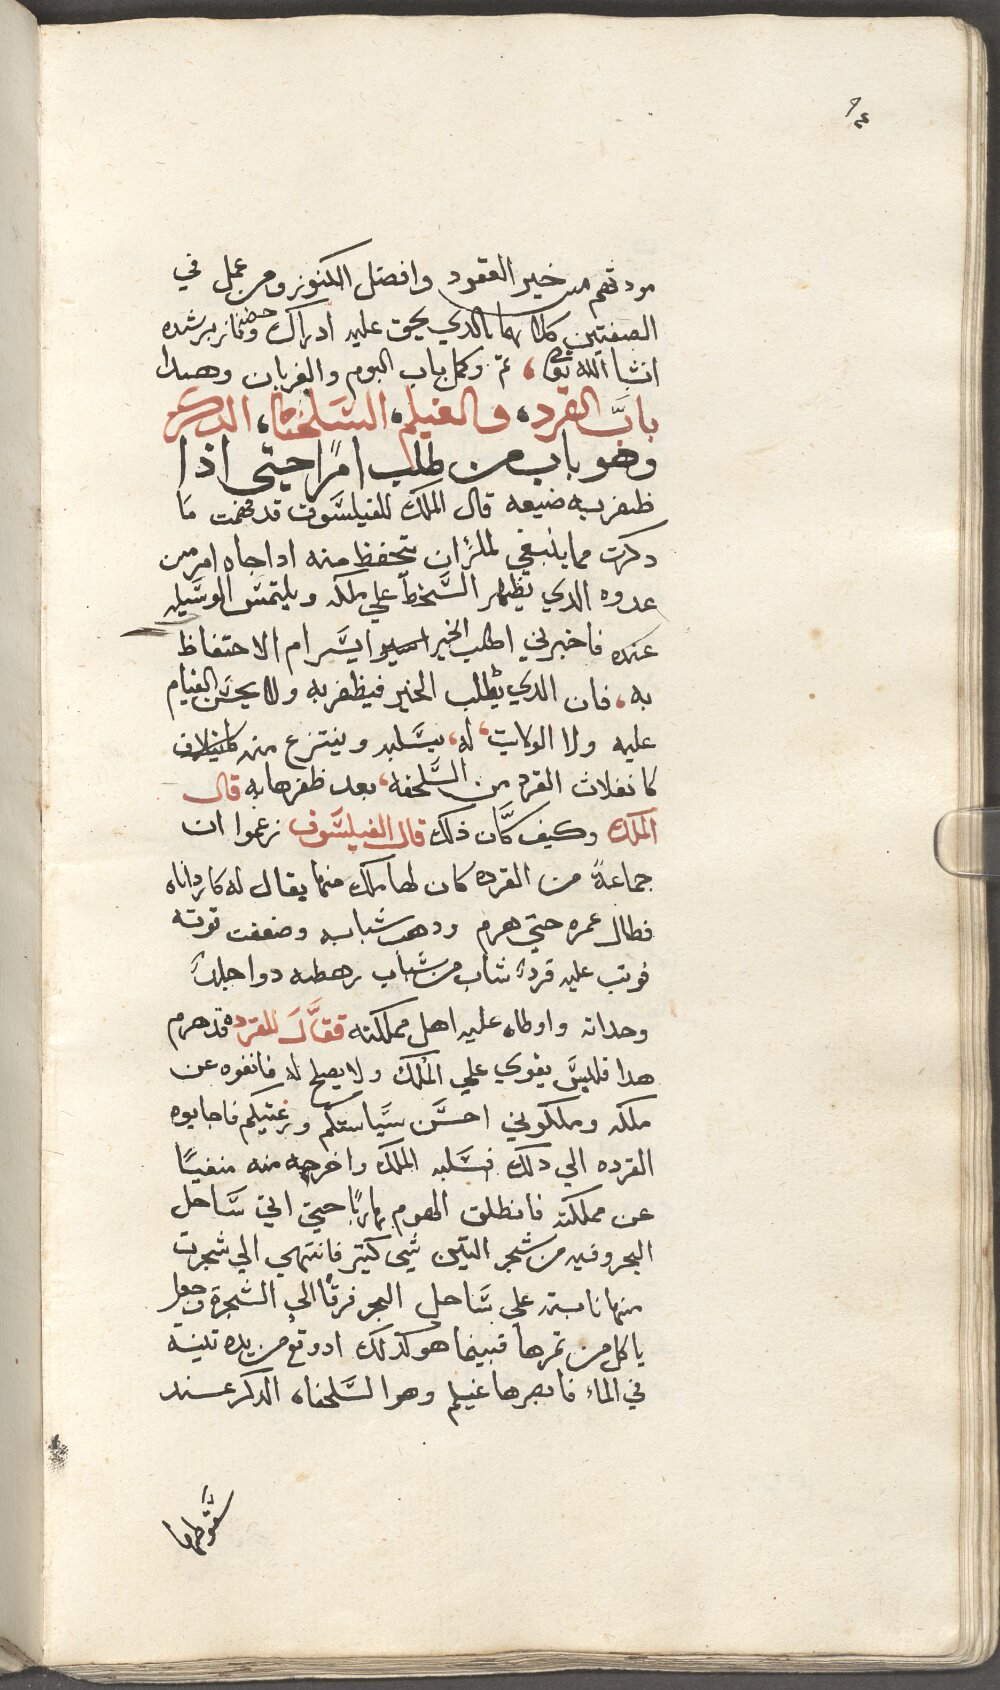 ٩٤
مودتهم من خير العقود وافضل الكنوز ومن عمل في
الصفتين كلاهما بالذي يحق عليه ادراك حضه وفاز برشده
انشا الله تعالى، تم وكمل باب البوم والغربان وهدا
باب القرد، والغيلم، السلحفاة، الدكر
وهو باب من طلب امرًا حتي اذا
ظفر به ضيعه قال الملك للفيلسوف قد فهمت ما
دكرت مما ينبغي للمرؤ ان يتحفظ منه اداجاه امر من
عدوه الدي يظهر السخط علي ملكه ويلتمس الوسيله
عنده فاخبرني اطلب الخير ايسر ام الاحتفاظ
به، فان الدي يطلب الخير فيظفر به ولا يحسن القيام
عليه ولا الولايت، له، يسلبه وينتزع منه
كانفلات القرد من السلحفه، بعد ظفرها به قال
الملك وكيف كان ذلك قال الفيلسوف زعموا ان
جماعةً من القرده كان لها ملك منها يقال له كارداناه
فطال عمره حتي هرم ودهب شبابه وضعفت قوته
فوتب عليه قرد شاب من شباب رهطه دوا جلد
وحداته واوطاه عليه اهل مملكته فقال للقرده قد هرم
هدا فليس يقوي علي الملك ولا يصلح له فانفوه عن
ملكه وملكوني احسن سياستكم ورغيتكم فاجابوه
القرده الي دلك فسلبه الملك واخرجه منه منفيًا
عن مملكته فانطلق الهوم هاربًا حتي اتي ساحل
البحر وفيه من شجر التين شي كتير فانتهي الي شجرت
منها نابته علي ساحل البحر فرقًا الي الشجرة وجعل
ياكل من تمرها فبينما هو كذلك ادوقع من يده تينة
في الماء فابصرها غيلم وهو السلحفاه الدكر عند
سقوطها